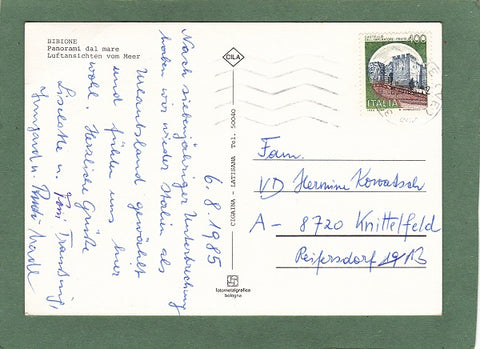 BIBIONE
Panorami dal mare
Luftansichten vom Meer
6.8.1985
Nach siebenjähriger Unterbrechung
haben wir wieder Italien als
Urlaubsland gewählt
und fühlen uns hier
wohl. Herzliche Grüße
Liselotte u.
Irmgard u.
CILA
CIGAINA - LATISANA Tel. 50040
fotometalgrafica
bologna
400
ITALIA
Fam.
VD Hermine Kowatsch
A - 8720 Knittelfeld
Reifersdorf 19